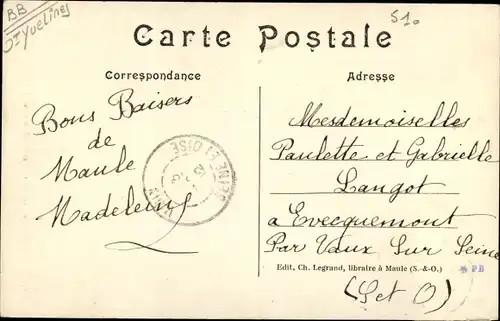 BB
St Yvelines
510
Carte Postale
Correspondance
Adresse
Bons Baisers
de
Maule
Madeleine
SEINE ET OISE
Mesdemoiselles
Paulette et Gabrielle
Langot
a Evecquemont
Par Vaux Sur Seine
Edit, Ch. Legrand, libraire à Maule (S.-&-O.)
PB
(S et O)